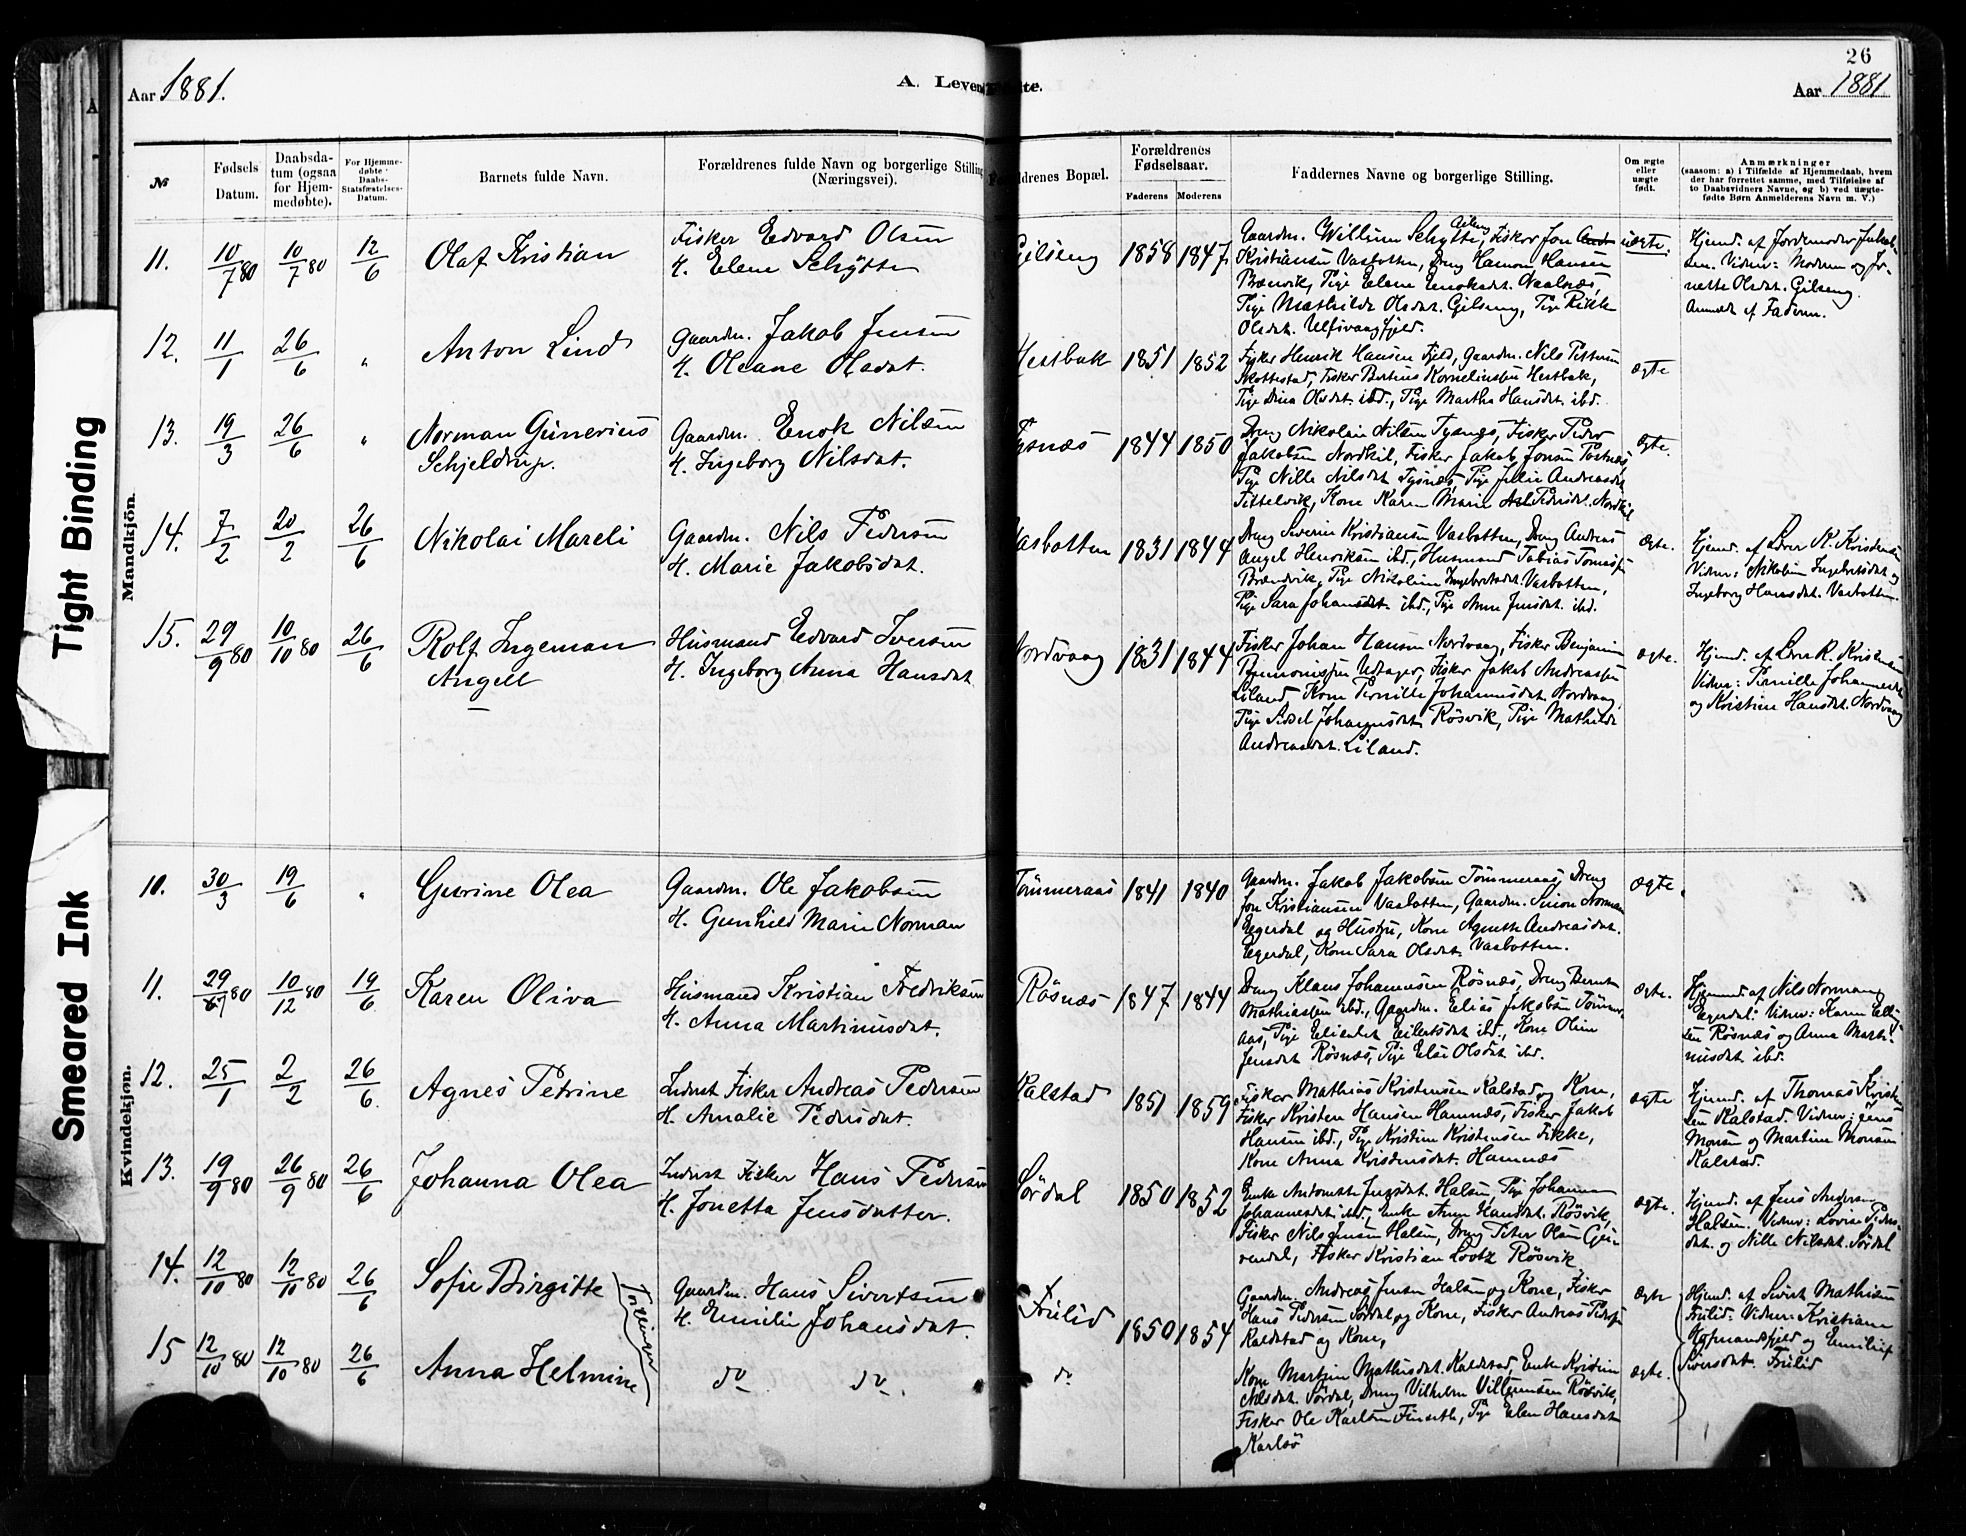 26
Aar 1881.
A. Levendefødte.
Aar 1881
№
Fødsels Datum.
Daabsdatum (ogsaa for Hjemmedøbte).
For Hjemmedøbte Daabs-Statsfæstelses-Datum.
Barnets fulde Navn.
Forældrenes fulde Navn og borgerlige Stilling (Næringsvei).
Forældrenes Bopæl.
Forældrenes Fødselsaar.
Faderens
Moderens
Faddernes Navne og borgerlige Stilling.
Om ægte eller uægte født.
Anmærkninger
(saasom: a) i Tilfælde af Hjemmedaab, hvem der har forrettet samme, med Tilføielse af to Daabsvidners Navne, og b) ved uægtefødte Børn Anmelderens Navn m. V.)
Tight Binding
Smeared Ink
Mandkjön.
11. 10/7 80 10/7 80 12/6 Olaf Kristian
Fisker Edvard Olsen
H. Elene Schytte
Gilseng 1858 1847
Gaardm. Willum Schytte, Gilseng, Fisker Jon
Kristiansen Vasbotten, Dreng Hamon Hansen
Brænvik, Pige Elene Enoksdt.
Pige Mathilde Olsdat. Gilseng, Pige Rikke
Olsdat. Ulfsvaagfjeld.
uægte.
Hjemd. af Jordemoder Jakobsen. Vidner: Moderen og
Olsdat. Gilseng.
Anmeldt af Faderen.
12. 11/1 26/6 „ Anton Lind
Gaardm. Jakob Jensen
H. Oleane Olsdat.
Hestbak 1851 1852
Fisker Henrik Hansen Fjeld, Gaardm. Nils Pettersen
Skottestad, Fisker Bertius Korneliussen Hestbak,
Pige Dina Olsdat. ibd., Pige Martha Hansdt. ibd.
ægte
13. 19/3 26/6 „ Norman Gunerius
Schjeldrup.
Gaardm. Enok Nilsen
H. Ingeborg Nilsdat.
Tysnæs 1844 1850
Dreng Nikolai Nilsen Tysnæs, Fisker Peder
Jakobsen Nordkil, Fisker Jakob Jonsen
Pige Nille Nilsdat Tysnæs, Pige Julie Andreasdat
Tittelvik, Kone Karen Marie Pedersdt. Nordkil
ægte.
14. 7/2 20/2 26/6 Nikolai Mareli
Gaardm. Nils Pedersen
H. Marie Jakobsdat.
Vasbotten 1831 1844
Dreng Severin Kristiansen Vasbotten, Dreng Andreas
Angel Henriksen ibd., Husmand Tobias
Brændvik, Pige Nikoline Ingebrtsdat. Vasbotten,
Pige Sara Johansdat. ibd., Pige Anne Jensdat. ibd.
ægte.
Hjemd. af Lærer R. Kristensen
Vidner: Nikoline Ingebrtsdat og
Ingeborg Hansdat. Vasbotten.
15. 29/9 80 10/10 80 26/6 Rolf Ingeman
Angell
Husmand Edvard Iversen
H. Ingeborg Anna Hansdat
Nordvaag 1831 1844
Fisker Johan Hansen Nordvaag, Fisker Benjamin
Fisker Jakob Andreassen
Liland, Kone Pernille Johannesdat. Nordvaag,
Pige Sidsel Johannesdat. Røsvik, Pige Mathilde
Andreasdat. Liland.
ægte.
Hjemd. af Lærer R. Kristensen
Vidner: Pernille Johannesdt.
og Kristine Hansdat. Nordvaag
Kvindekjøn.
10. 30/3 19/6 „ Gurine Olea
Gaardm. Ole Jakobsen
H. Gunhild Marie Norman
Tømmeraas 1841 1840
Gaardm. Jakob Jakobsen Tømmeraas, Dreng
Jon Kristiansen Vasbotten, Gaardm. Simon Norman
Ægerdal og Hustru, Kone Agnethe Andreasdat.
Ægerdal, Kone Sara Olsdat. Vasbotten.
ægte.
11. 29/ 80 10/12 80 19/6 Karen Oliva
Husmand Kristian Fredriksen
H. Anna Martinusdat.
Røsnæs 1847 1844
Dreng Klaus Johannesen Røsnæs, Dreng Bernt
Mathiassen ibd., Gaardm. Elias Jakobsen Tømmeraas,
Pige Elisabet Eilertsdat ibd., Kone Oline
Jensdat Røsnæs, Pige Else Olsdat ibd.
ægte.
Hjemd. af Nils Norman
Ægerdal. Vidner: Karen
Røsnæs og Anna Martinusdat ibd.
12. 25/1 2/2 26/6 Agnes Petrine
Inderst Fisker Andreas Pedersen
H. Amalie Pedersdat.
Kalstad 1851 1859
Fisker Mathias Kristensen Kalstad og Kone,
Fisker Kristen Hansen Hamnæs, Fisker Jakob
Hansen ibd., Pige Kristine Kristensen Fikke,
Kone Anna Kristensdat. Hamnæs
ægte
Hjemd. af Thomas Kristensen Kalstad. Vidner: Jens
Monsen og Martine Monsen
Kalstad.
13. 19/9 80 26/9 80 26/6 Johanna Olea
Inderst Fisker Hans Pedersen
H. Jonetta Jensdatter.
Sørdal 1850 1852
Enke Antonette Jensdat. Halsen, Pige Johanna
Johannesdat. ibd., Enke Anne Hansdat. Røsvik,
Fisker Nils Jensen Halsen, Dreng Peter Olsen
Fisker Kristian Lootz Røsvik
ægte.
Hjemd. af Jens Andersen
Halsen. Vidner: Lovise Pedersdat. og Nille Nilsdat. Sørdal
14. 12/10 80 12/10 80 26/6 Sofie Birgitte
Tvillinger
Gaardm. Hans Sivertsen
H. Emilie Johansdat.
Frulid 1850 1854
Gaardm. Andreas Jensen Halsen og Kone, Fisker
Hans Pedersen Sørdal og Kone, Fisker Andreas Peders.
Kaldstad og Kone,
ægte
Hjemd. af Sivert Mathisen
Frulid. Vidner: Kristiane
og Emilie
Siversdat. Frulid
15 12/10 80 12/10 80 26/6 Anna Helmine
do do.
do
Kone Martine Mathisdat. Kaldstad, Enke Kristine
Nilsdat. Sørdal, Dreng Vilhelm Villumsen Røsvik,
Fisker Ole Karlsen Finseth, Pige Elen Hansdat.
Karlsø
ægte.